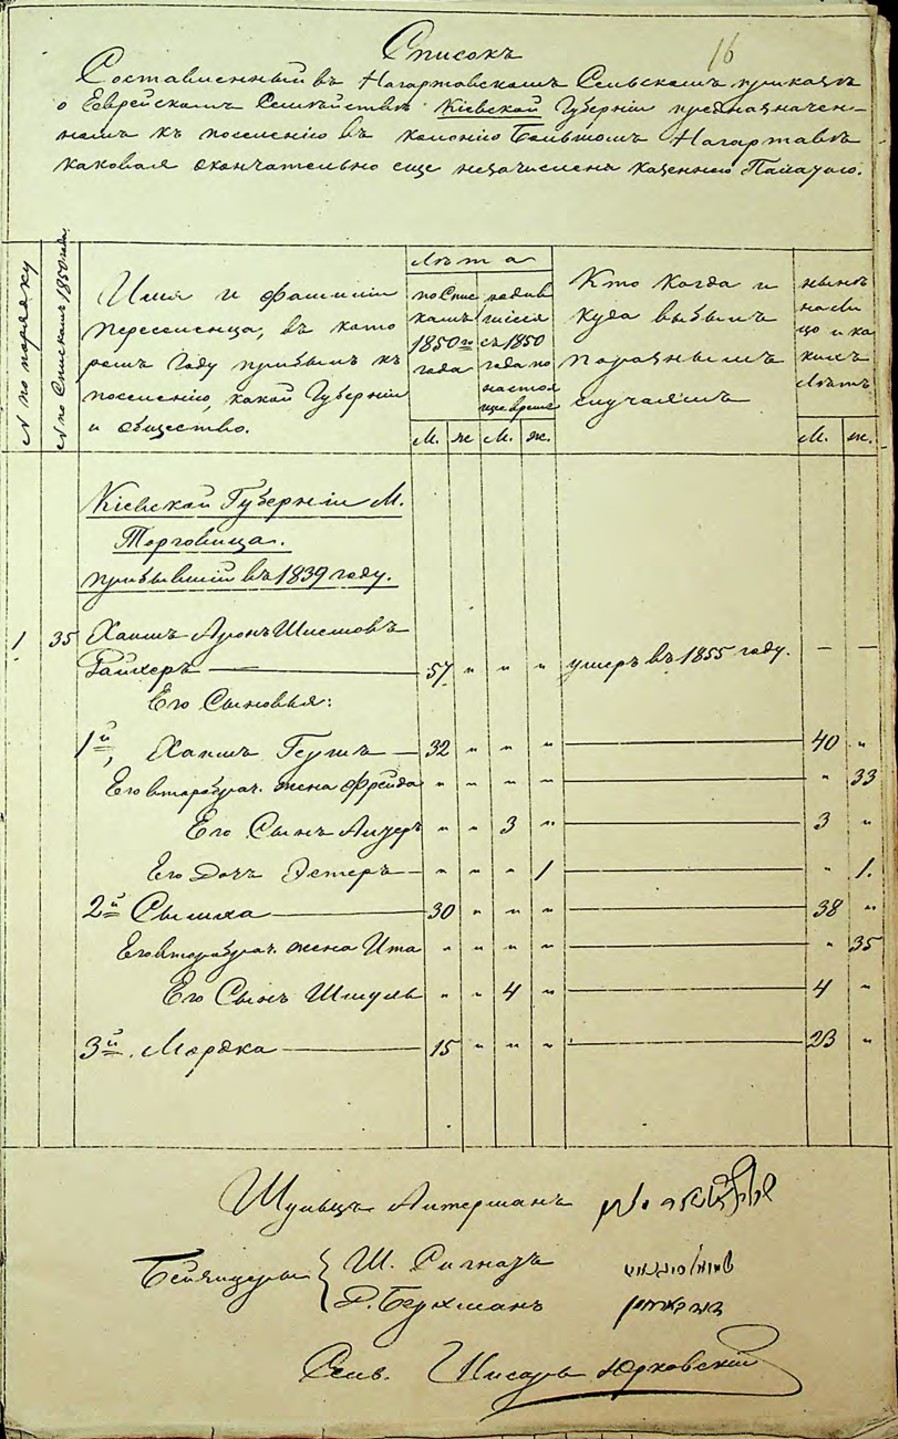 Списокъ
16
Составленный въ Нагартавскомъ Сельскомъ приказѣ
о Еврейскомъ Семѣйствѣ Кіевской Губерніи предназначен-
номъ къ поселенію въ колонію Большомъ Нагартавѣ
каковая окончательно еще незачислена казенною Палатою.
№ по порядку
№ по Спискамъ 1850 года
Имя и фамиліи
переселенца, въ кото
ромъ году прибылъ къ
поселенію, какой Губерніи
и общество.
Лѣта
по Спис
камъ
1850го
года
М. ж
съ 1850
года по
настоя
щее время
М. ж.
Кто когда и
куда выбылъ
по разнымъ
случаямъ
нынѣ
на ли
цо и ка
кихъ
лѣтъ
М. ж.
Кіевской Губерніи М.
Торговица.
прибывшій въ 1839 году.
1 35 Хаимъ Аронъ Шлемовъ
Райхеръ — 57 " " " умеръ въ 1855 году. — —
Его Сыновья:
1й, Хаимъ Гершъ — 32 " " " — 40 "
Его второбрач. жена Фрейда " " " " — " 33
Его Сынъ Лузеръ " " 3 " — 3 "
Его Дочь Эстеръ — " " " 1 — " 1.
2й Сымха — 30 " " " — 38 "
Его второбрач. жена Ита " " " " — " 35
Его Сынъ Шмуль " " 4 " — 4 "
3й. Мордка — 15 " " " — 23 "
Шульцъ Антерманъ
Бейзицеры { Ш. Сигналъ
Д. Беркманъ
Сель. Писарь Юрковскій